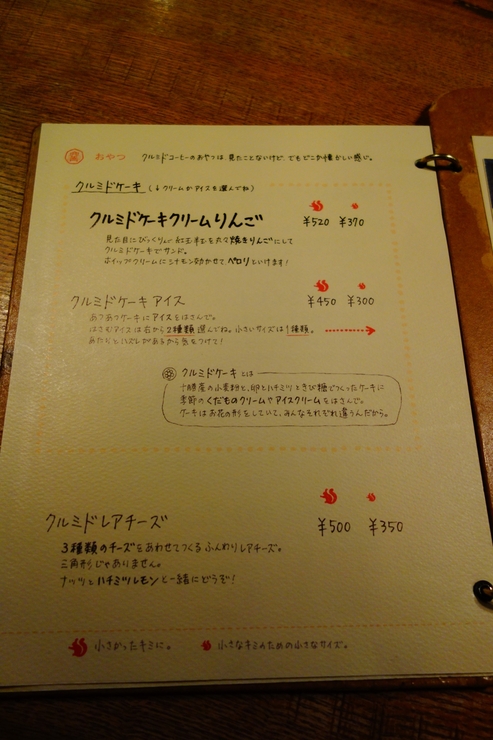 おやつ クルミドコーヒーのおやつは、見たことないけど、でもどこか懐かしい感じ。
クルミドケーキ (↓クリームかアイスを選んでね)
クルミドケーキクリームりんご ¥520 ¥370
見た目にびっくり。紅玉を丸々焼きりんごにして
クルミドケーキでサンド。
ホイップクリームにシナモン効かせてペロリといけます!
クルミドケーキ アイス ¥450 ¥300
あつあつケーキにアイスをはさんで。
はさむアイスは右から2種類選んでね。小さいサイズは1種類。
あたりとハズレがあるから気をつけて!
クルミドケーキとは
十勝産の小麦粉と、卵とハチミツときび糖でつくったケーキに
季節のくだものクリームやアイスクリームをはさんで。
ケーキはお花の形をしていて、みんなそれぞれ違うんだから。
クルミドレアチーズ ¥500 ¥350
3種類のチーズをあわせてつくるふんわりレアチーズ。
三角形じゃありません。
ナッツとハチミツレモンと一緒にどうぞ!
小さかったキミに。 小さなキミのための小さなサイズ。